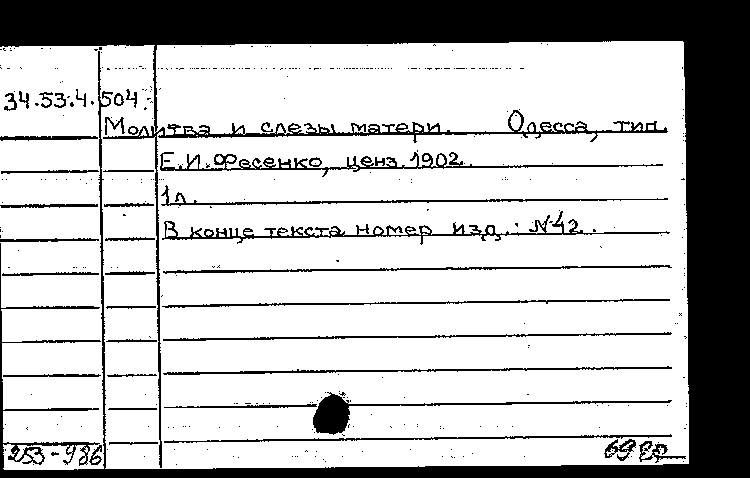 34.53.4.504.
Молитва и слезы матери. Одесса, тип.
Е.И.Фесенко, ценз. 1902.
1л.
В конце текста номер изд.: N42.
253-986